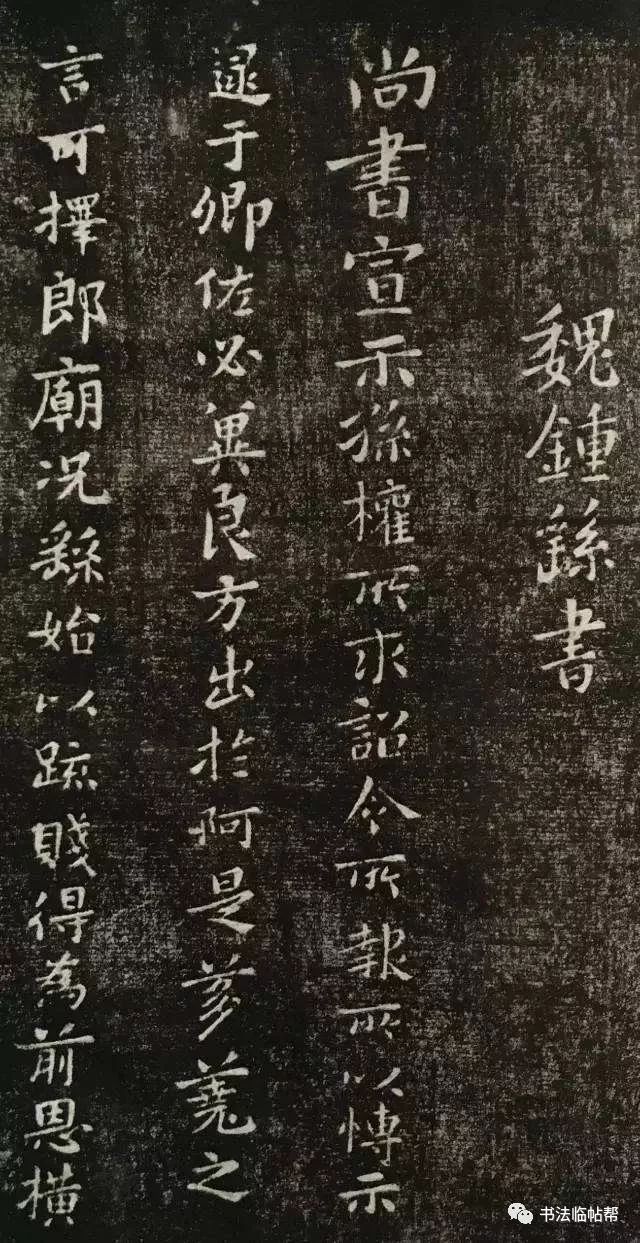 魏鍾繇書
尚書宣示孫權所求詔令所報所以博示
逮于卿佐必冀良方出於阿是芻蕘之
言可擇郎廟況繇始以疏賤得為前恩橫
书法临帖帮